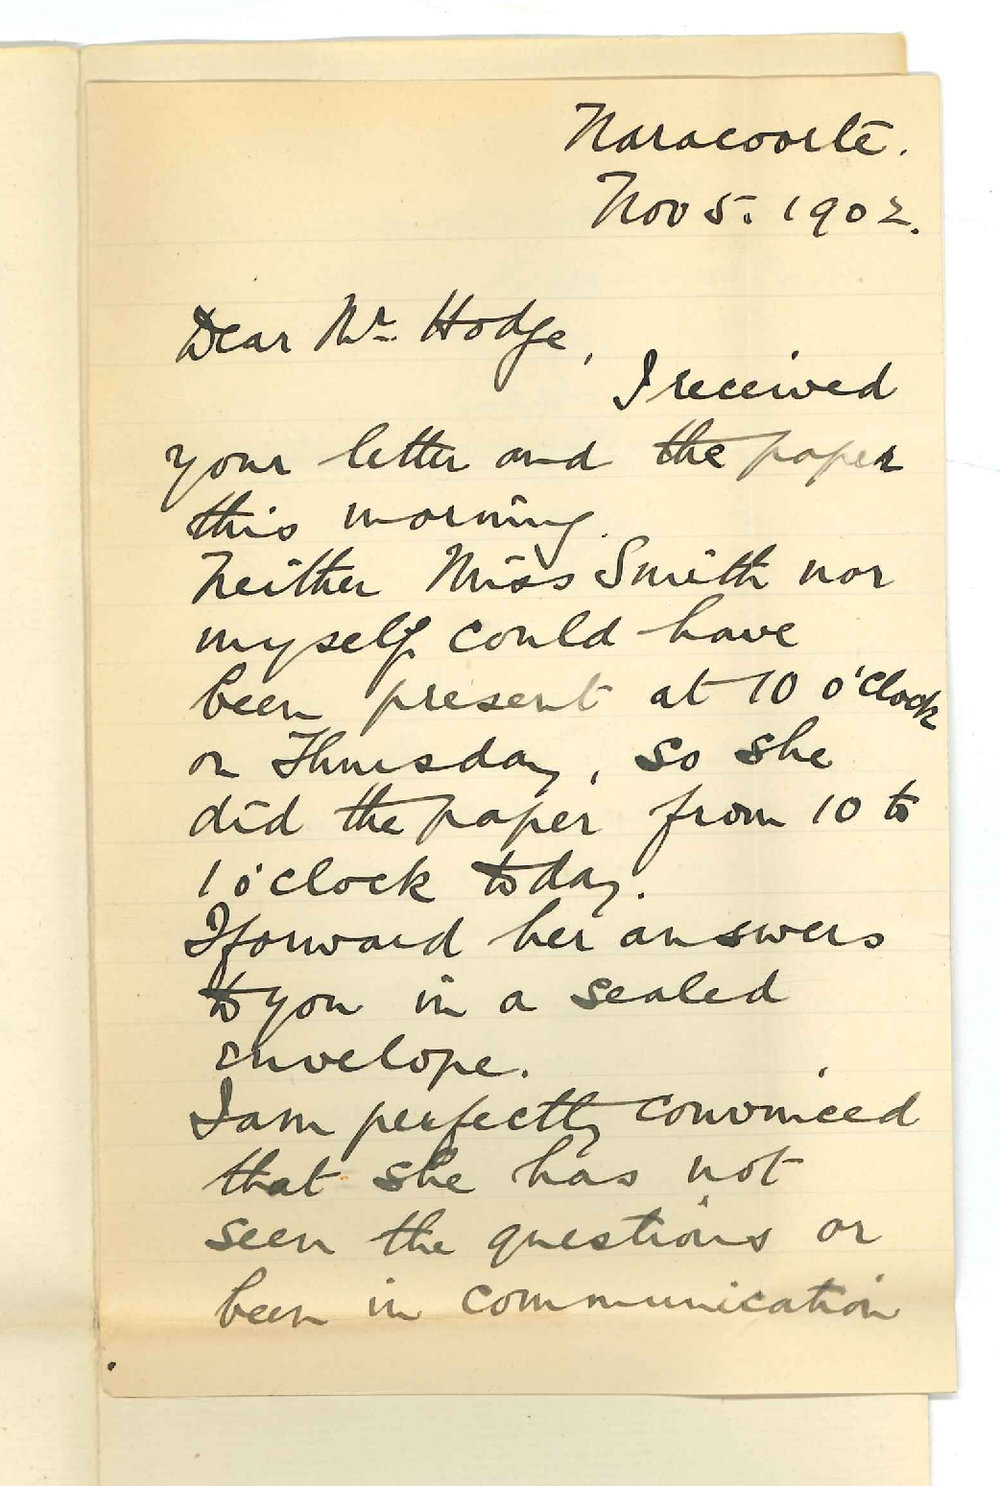 Naracoorte.
Nov 5. 1902.
Dear Mr. Hodge,
I received
your letter and the paper
this morning.
Neither Miss Smith nor
myself could have
been present at 10 o'clock
on Thursday, so she
did the paper from 10 to
1 o'clock today.
I forward her answers
to you in a sealed
envelope.
I am perfectly convinced
that she has not
seen the questions or
been in communication